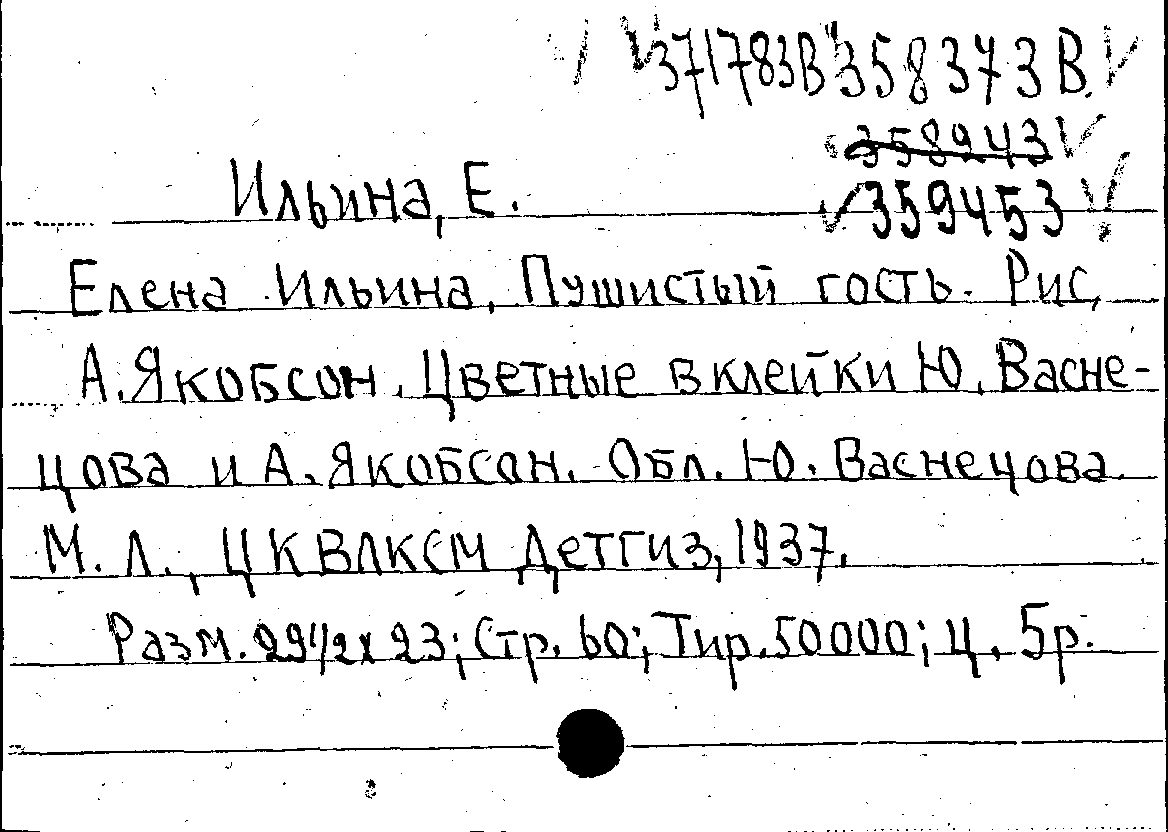 371783В 358373 В.
358943
Ильина, Е. 359453
Елена Ильина, Пушистый гость. Рис,
А. Якобсон. Цветные вклейки Ю. Васне-
цова и А. Якобсон. Обл. Ю. Васнецова.
М. Л., ЦК ВЛКСМ Детгиз, 1937.
Разм. 29 1/2 х 23; Стр. 60; Тир. 50000; Ц. 5р.